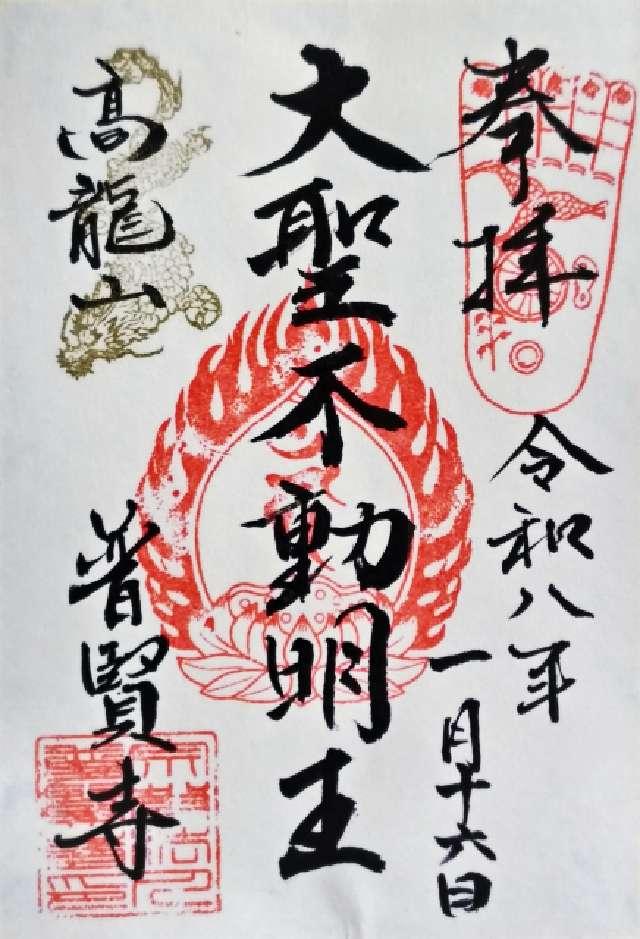 奉拝
令和八年
一月十六日
大聖不動明王
高龍山
普賢寺